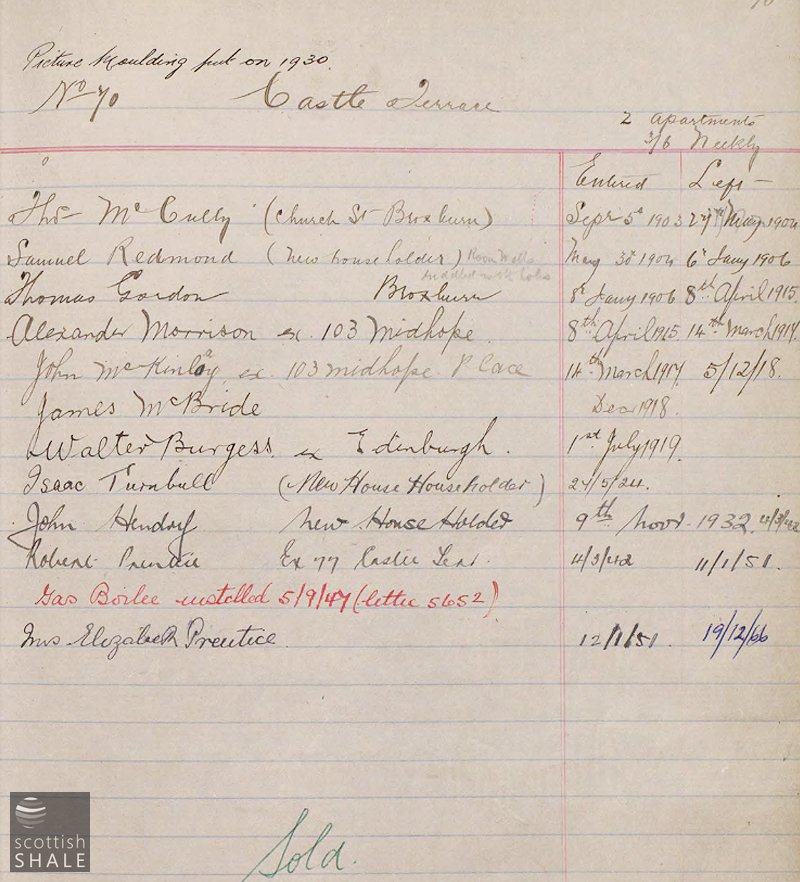 Picture Moulding put on 1930.
No 70 Castle Terrace
2 apartments
3/6 Weekly
Entered Left
Thos McCully (Church St Broxburn) Sepr 5th 1903 27th May 1904
Samuel Redmond (New householder) Room Walls riddled with holes May 30th 1904 6th Jany 1906
Thomas Gordon Broxburn 8th Jany 1906 8th April 1915.
Alexander Morrison ex. 103 Midhope. 8th April 1915. 14th March 1917.
John McKinlay ex. 103 midhope Place 14th March 1917. 5/12/18.
James McBride Decr 1918.
Walter Burgess. ex Edinburgh. 1st July 1919.
Isaac Turnbull (New House Householder) 27/5/24.
John Hendry New House Holder 9th Novr 1932. 4/3/42
Robert Prentice Ex 77 Castle Terr. 4/3/42 11/1/51.
Gas Boiler installed 5/9/47 (letter 5652)
Mrs Elizabeth Prentice. 12/1/51. 19/12/66
Sold.
scottish
SHALE